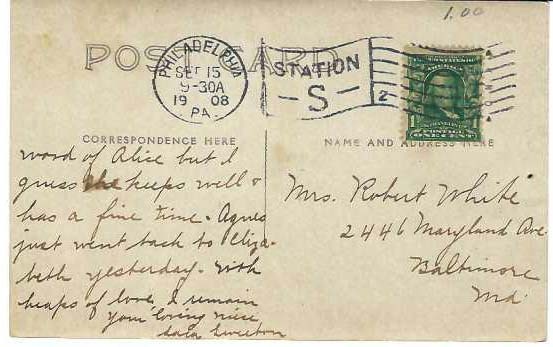 1.00
POST CARD
PHILADELPHIA
SEP 15
9-30A
1908
PA.
STATION
-S-
2
1
POSTAGE
ONE CENT
CORRESPONDENCE HERE
NAME AND ADDRESS HERE
word of Alice but I
guess she keeps well &
has a fine time. Agnes
just went back to Eliza-
beth yesterday. With
heaps of love, I remain
Your loving niece
Mrs. Robert White
2446 Maryland Ave
Baltimore
Md.